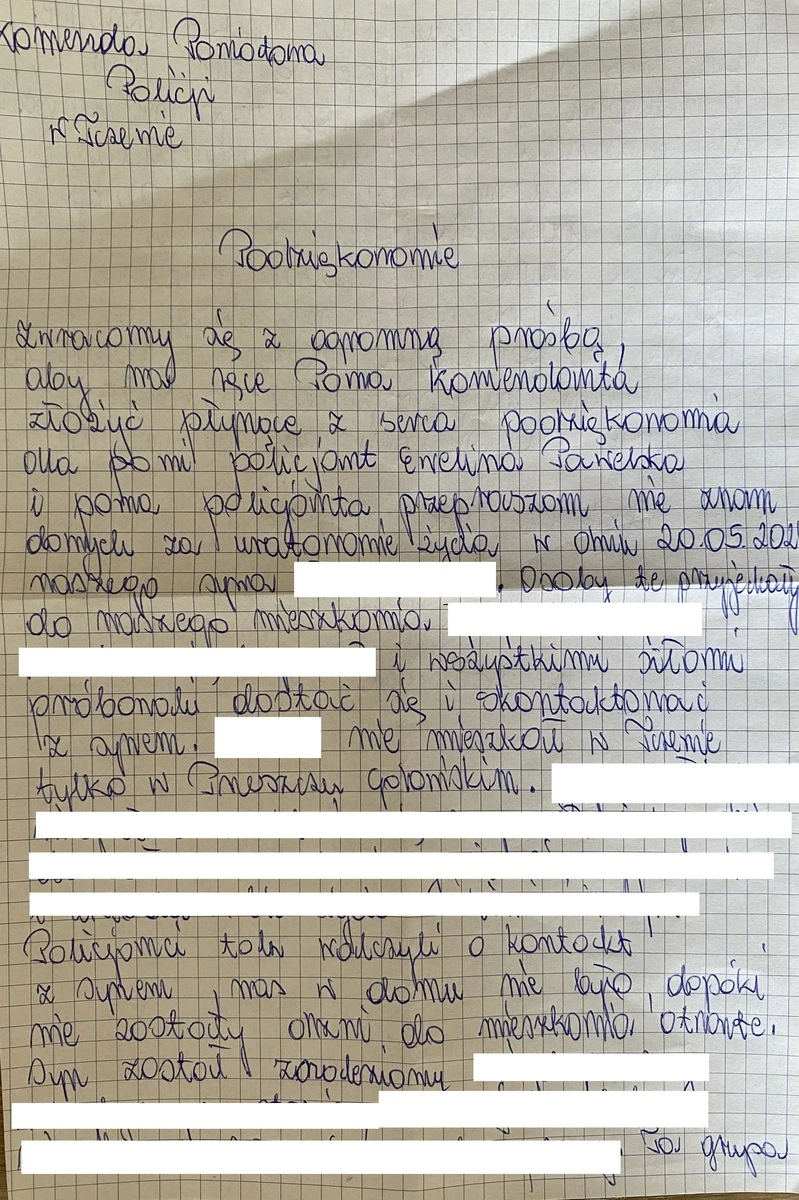 Komenda Powiatowa
Policji
w Tczewie
Podziękowanie
Zwracamy się z ogromną prośbą,
aby na ręce Pana Komendanta
złożyć płynące z serca podziękowania
dla pani policjant Ewelina Pawelska
i pana policjanta przepraszam nie znam
danych za uratowanie życia w dniu 20.05.202
naszego syna . Osoby te przyjechały
do naszego mieszkania.
i wszystkimi siłami
próbowali dostać się i skontaktować
z synem. nie mieszkał w Tczewie
tylko w Pruszczu Gdańskim.
Policjanci tak walczyli o kontakt
z synem, nas w domu nie było, dopóki
nie zostały drzwi do mieszkania otwarte.
Syn został
Ta grupa